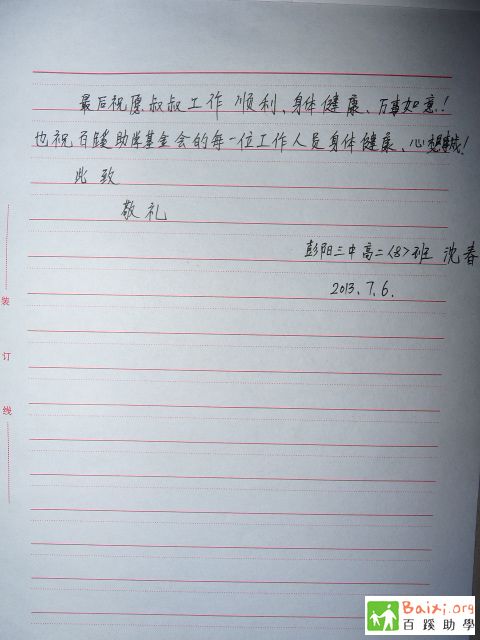 最后祝愿叔叔工作顺利、身体健康、万事如意!
也祝百蹊助学基金会的每一位工作人员身体健康、心想事成!
此致
敬礼
彭阳三中高二<8>班 沈春
2013.7.6.
装
订
线
Baixi.org
百蹊助學